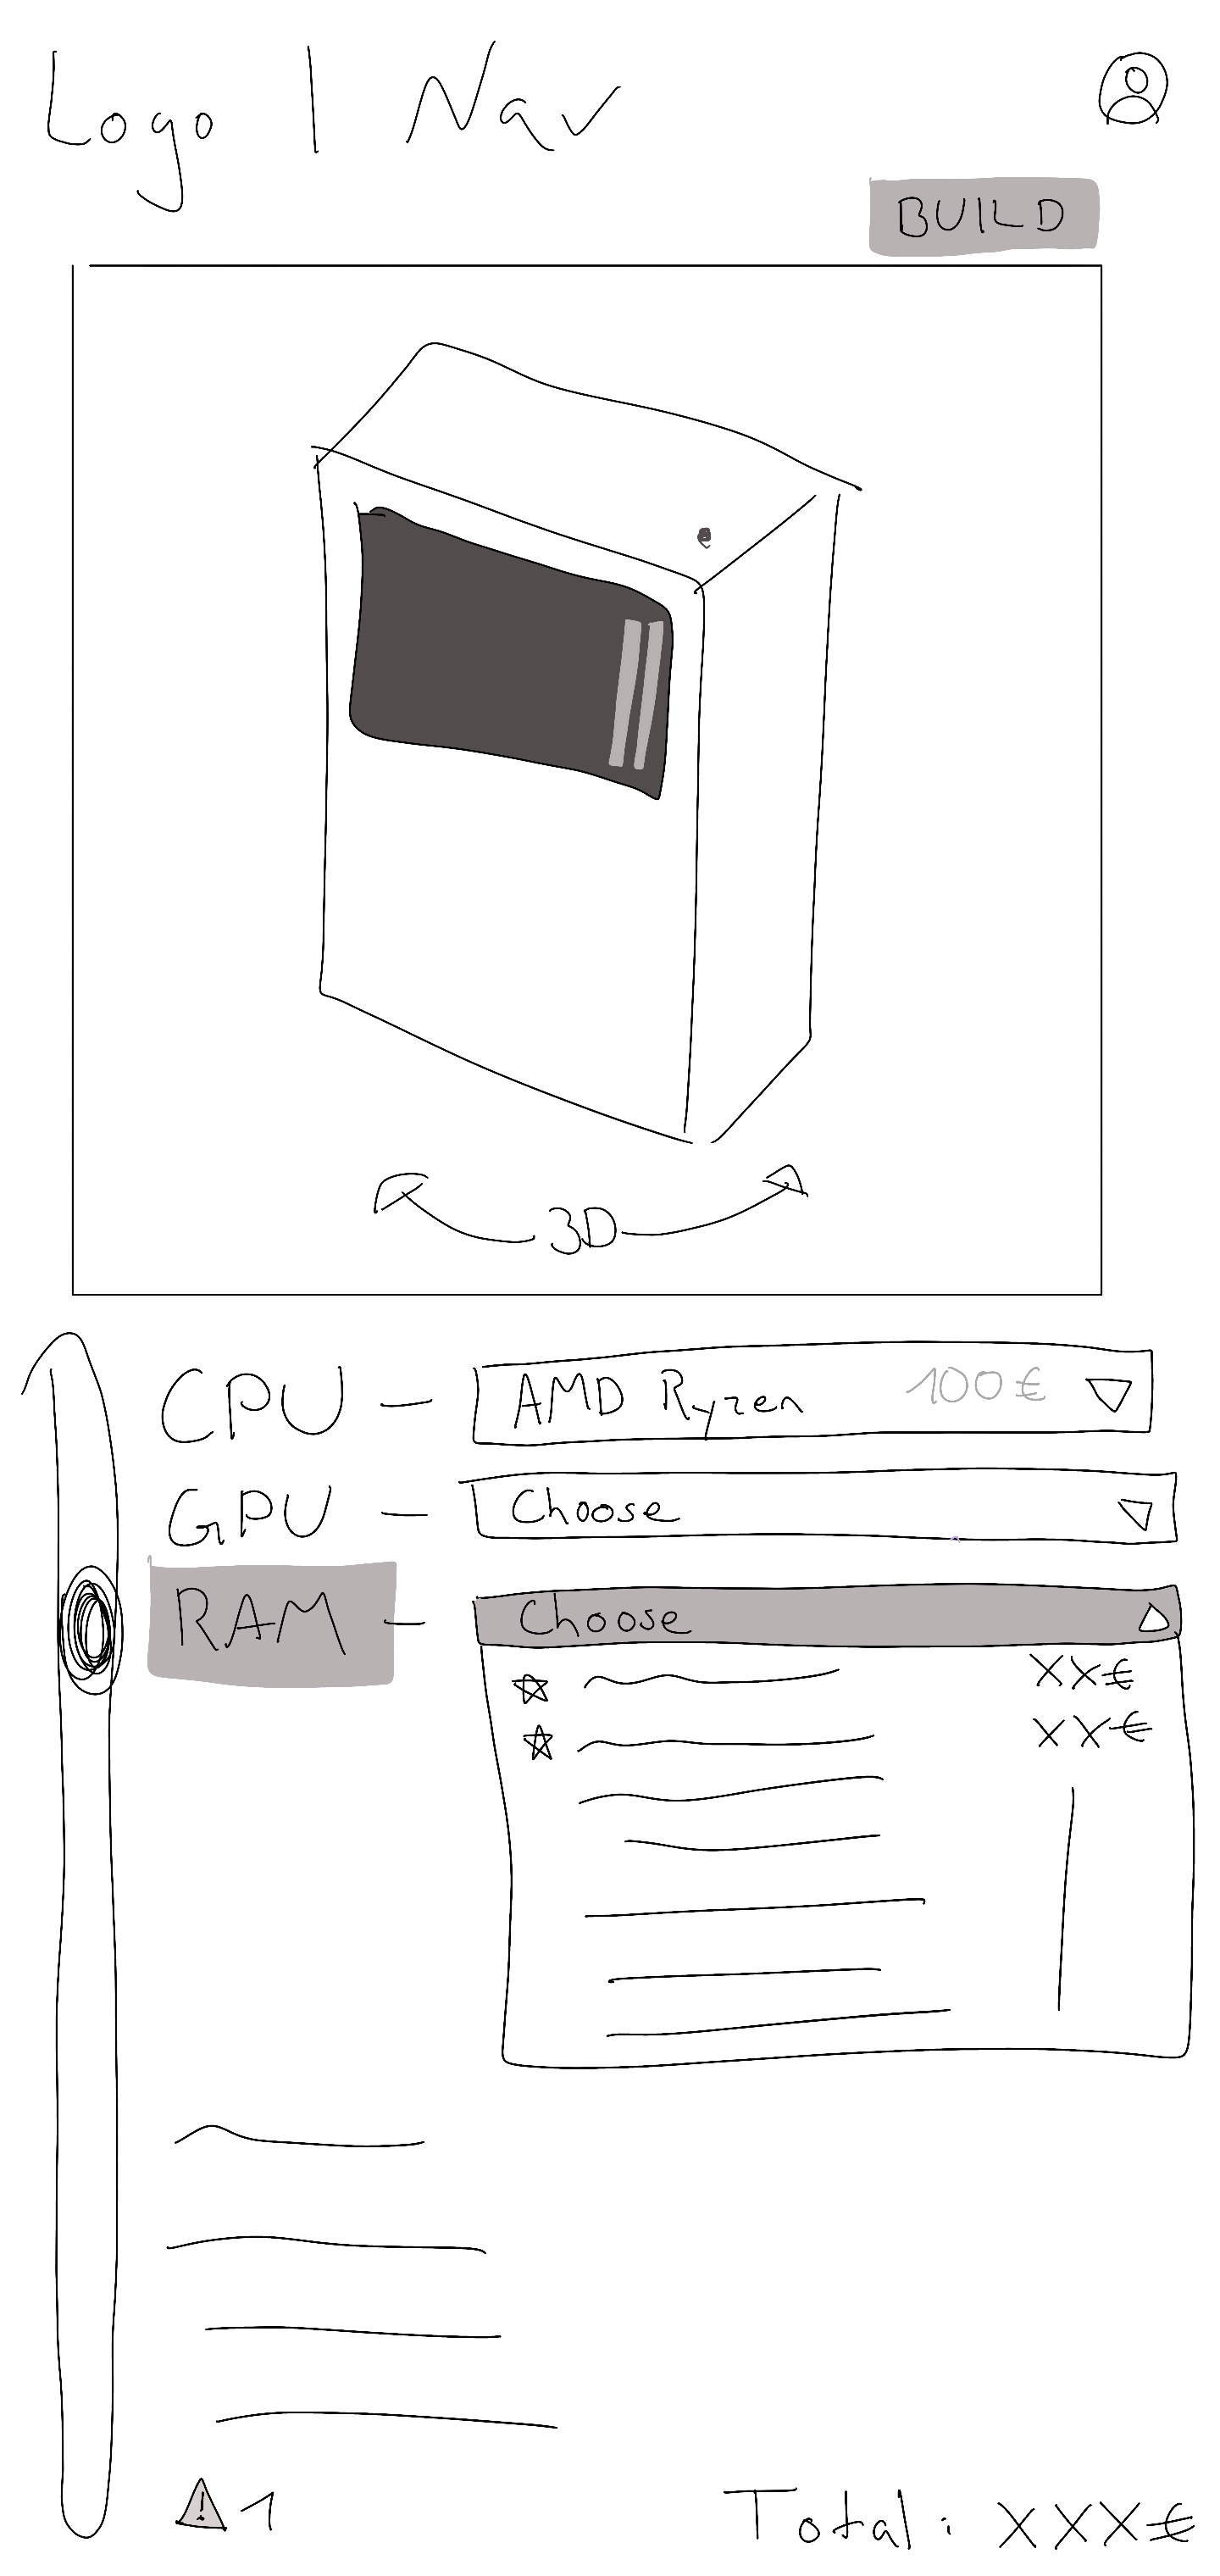 Logo | Nav
BUILD
3D
CPU - AMD Ryzen 100€
GPU - Choose
RAM - Choose
XX€
XX€
1
Total: XXX€